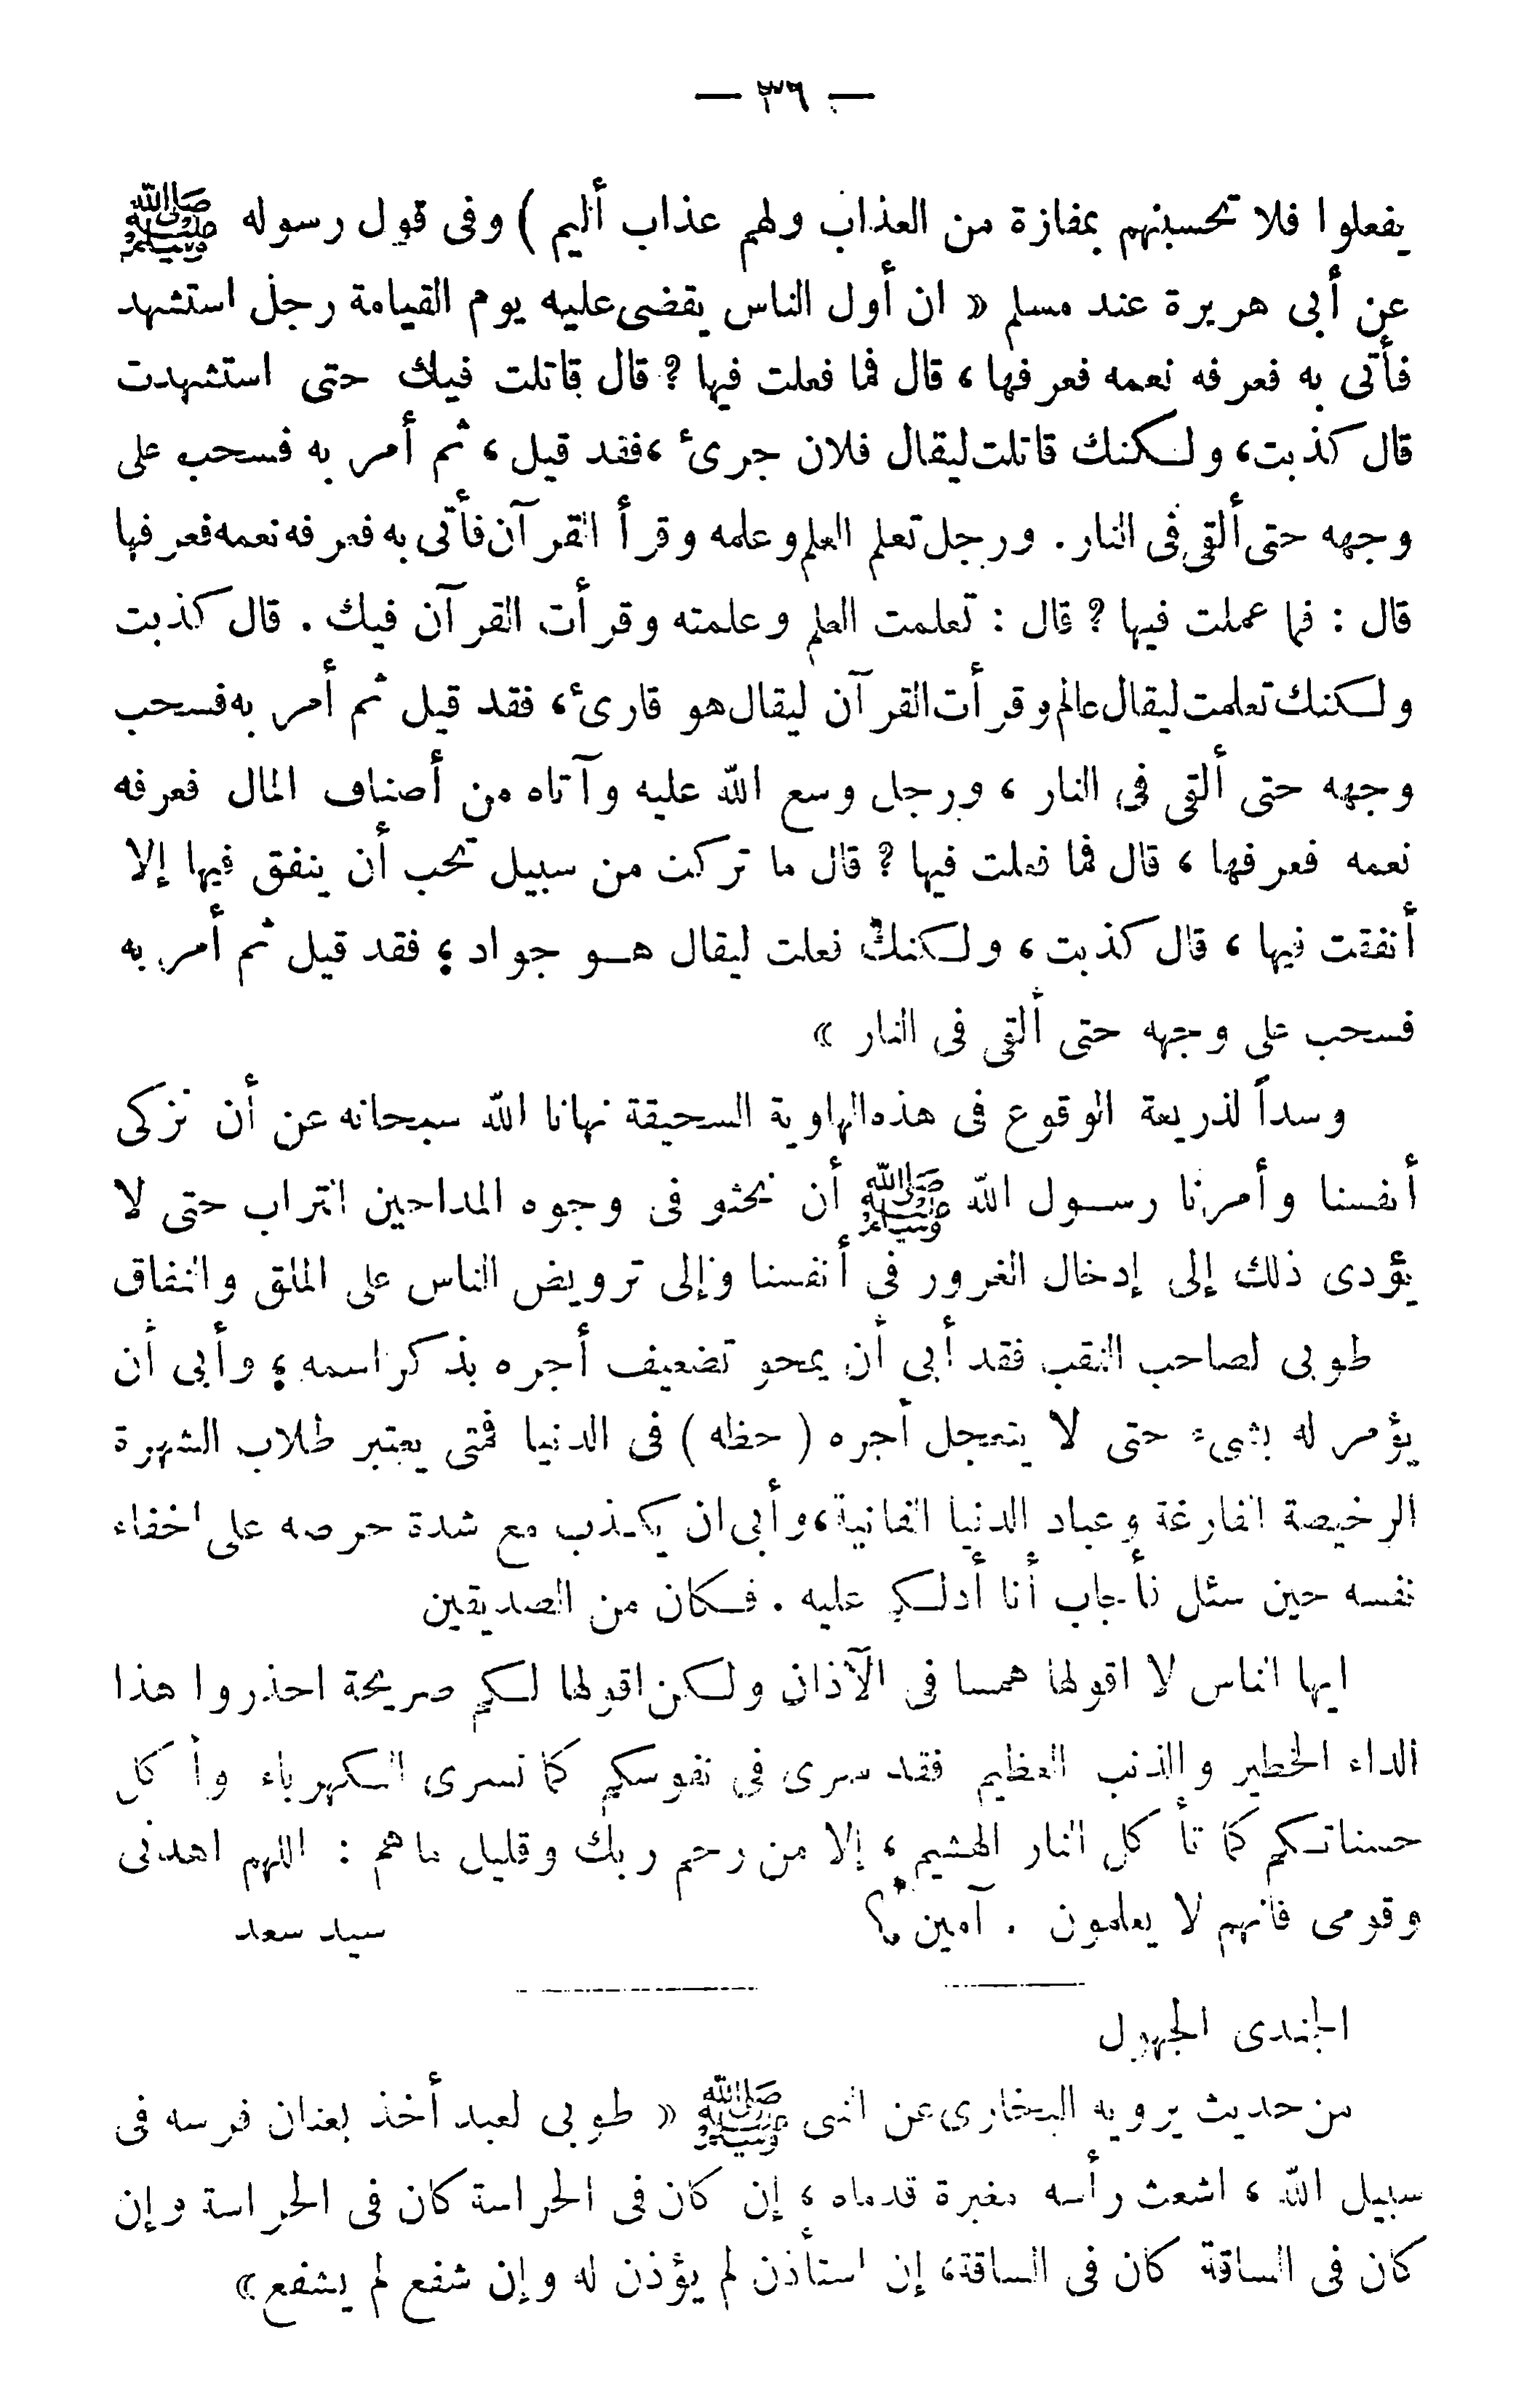 — ٣٦ —
يفعلوا فلا تحسبنهم بمفازة من العذاب ولهم عذاب أليم ) وفى قول رسوله ﷺ
عن أبى هريرة عند مسلم « ان أول الناس يقضى عليه يوم القيامة رجل استشهد
فأتى به فعرفه نعمه فعرفها ، قال فما فعلت فيها ؟ قال قاتلت فيك حتى استشهدت
قال كذبت ، ولكنك قاتلت ليقال فلان جرىء ، فقد قيل ، ثم أمر به فسحب على
وجهه حتى ألقى فى النار . ورجل تعلم العلم وعلمه وقرأ القرآن فأتى به فعرفه نعمه فعرفها
قال : فما عملت فيها ؟ قال : تعلمت العلم وعلمته وقرأت القرآن فيك . قال كذبت
ولكنك تعلمت ليقال عالم وقرأت القرآن ليقال هو قارىء ، فقد قيل ثم أمر به فسحب
وجهه حتى ألقى فى النار ، ورجل وسع الله عليه وآتاه من أصناف المال فعرفه
نعمه فعرفها ، قال فما فعلت فيها ؟ قال ما تركت من سبيل تحب أن ينفق فيها إلا
أنفقت فيها ، قال كذبت ، ولكنك فعلت ليقال هو جواد ؛ فقد قيل ثم أمر به
فسحب على وجهه حتى ألقى فى النار »
وسداً لذريعة الوقوع فى هذه الهاوية السحيقة نهانا الله سبحانه عن أن نزكى
أنفسنا وأمرنا رسول الله ﷺ أن نحثو فى وجوه المداحين التراب حتى لا
يؤدى ذلك إلى إدخال الغرور فى أنفسنا وإلى ترويض الناس على الملق والنفاق
طوبى لصاحب النقب فقد أبى أن يمحو تضعيف أجره بذكر اسمه ؛ وأبى أن
يؤمر له بشىء حتى لا يتعجل أجره ( حظه ) فى الدنيا فمتى يعتبر طلاب الشهرة
الرخيصة الفارغة وعباد الدنيا الفانية ، وأبى ان يكذب مع شدة حرصه على اخفاء
نفسه حين سئل فأجاب أنا أدلكم عليه . فكان من الصديقين
ايها الناس لا اقولها همسا فى الآذان ولكن اقولها لكم صريحة احذروا هذا
الداء الخطير والذنب العظيم فقد سرى فى نفوسكم كما تسرى الكهرباء وأكل
حسناتكم كما تأكل النار الهشيم ، إلا من رحم ربك وقليل ما هم : اللهم اهدنى
وقومى فانهم لا يعلمون . آمين ؟
سيد سعد
الجندى المجهول
من حديث يرويه البخارى عن النبى ﷺ « طوبى لعبد أخذ بعنان فرسه فى
سبيل الله ، اشعث رأسه مغبرة قدماه ، إن كان فى الحراسة كان فى الحراسة وإن
كان فى الساقة كان فى الساقة ، إن استأذن لم يؤذن له وإن شفع لم يشفع »